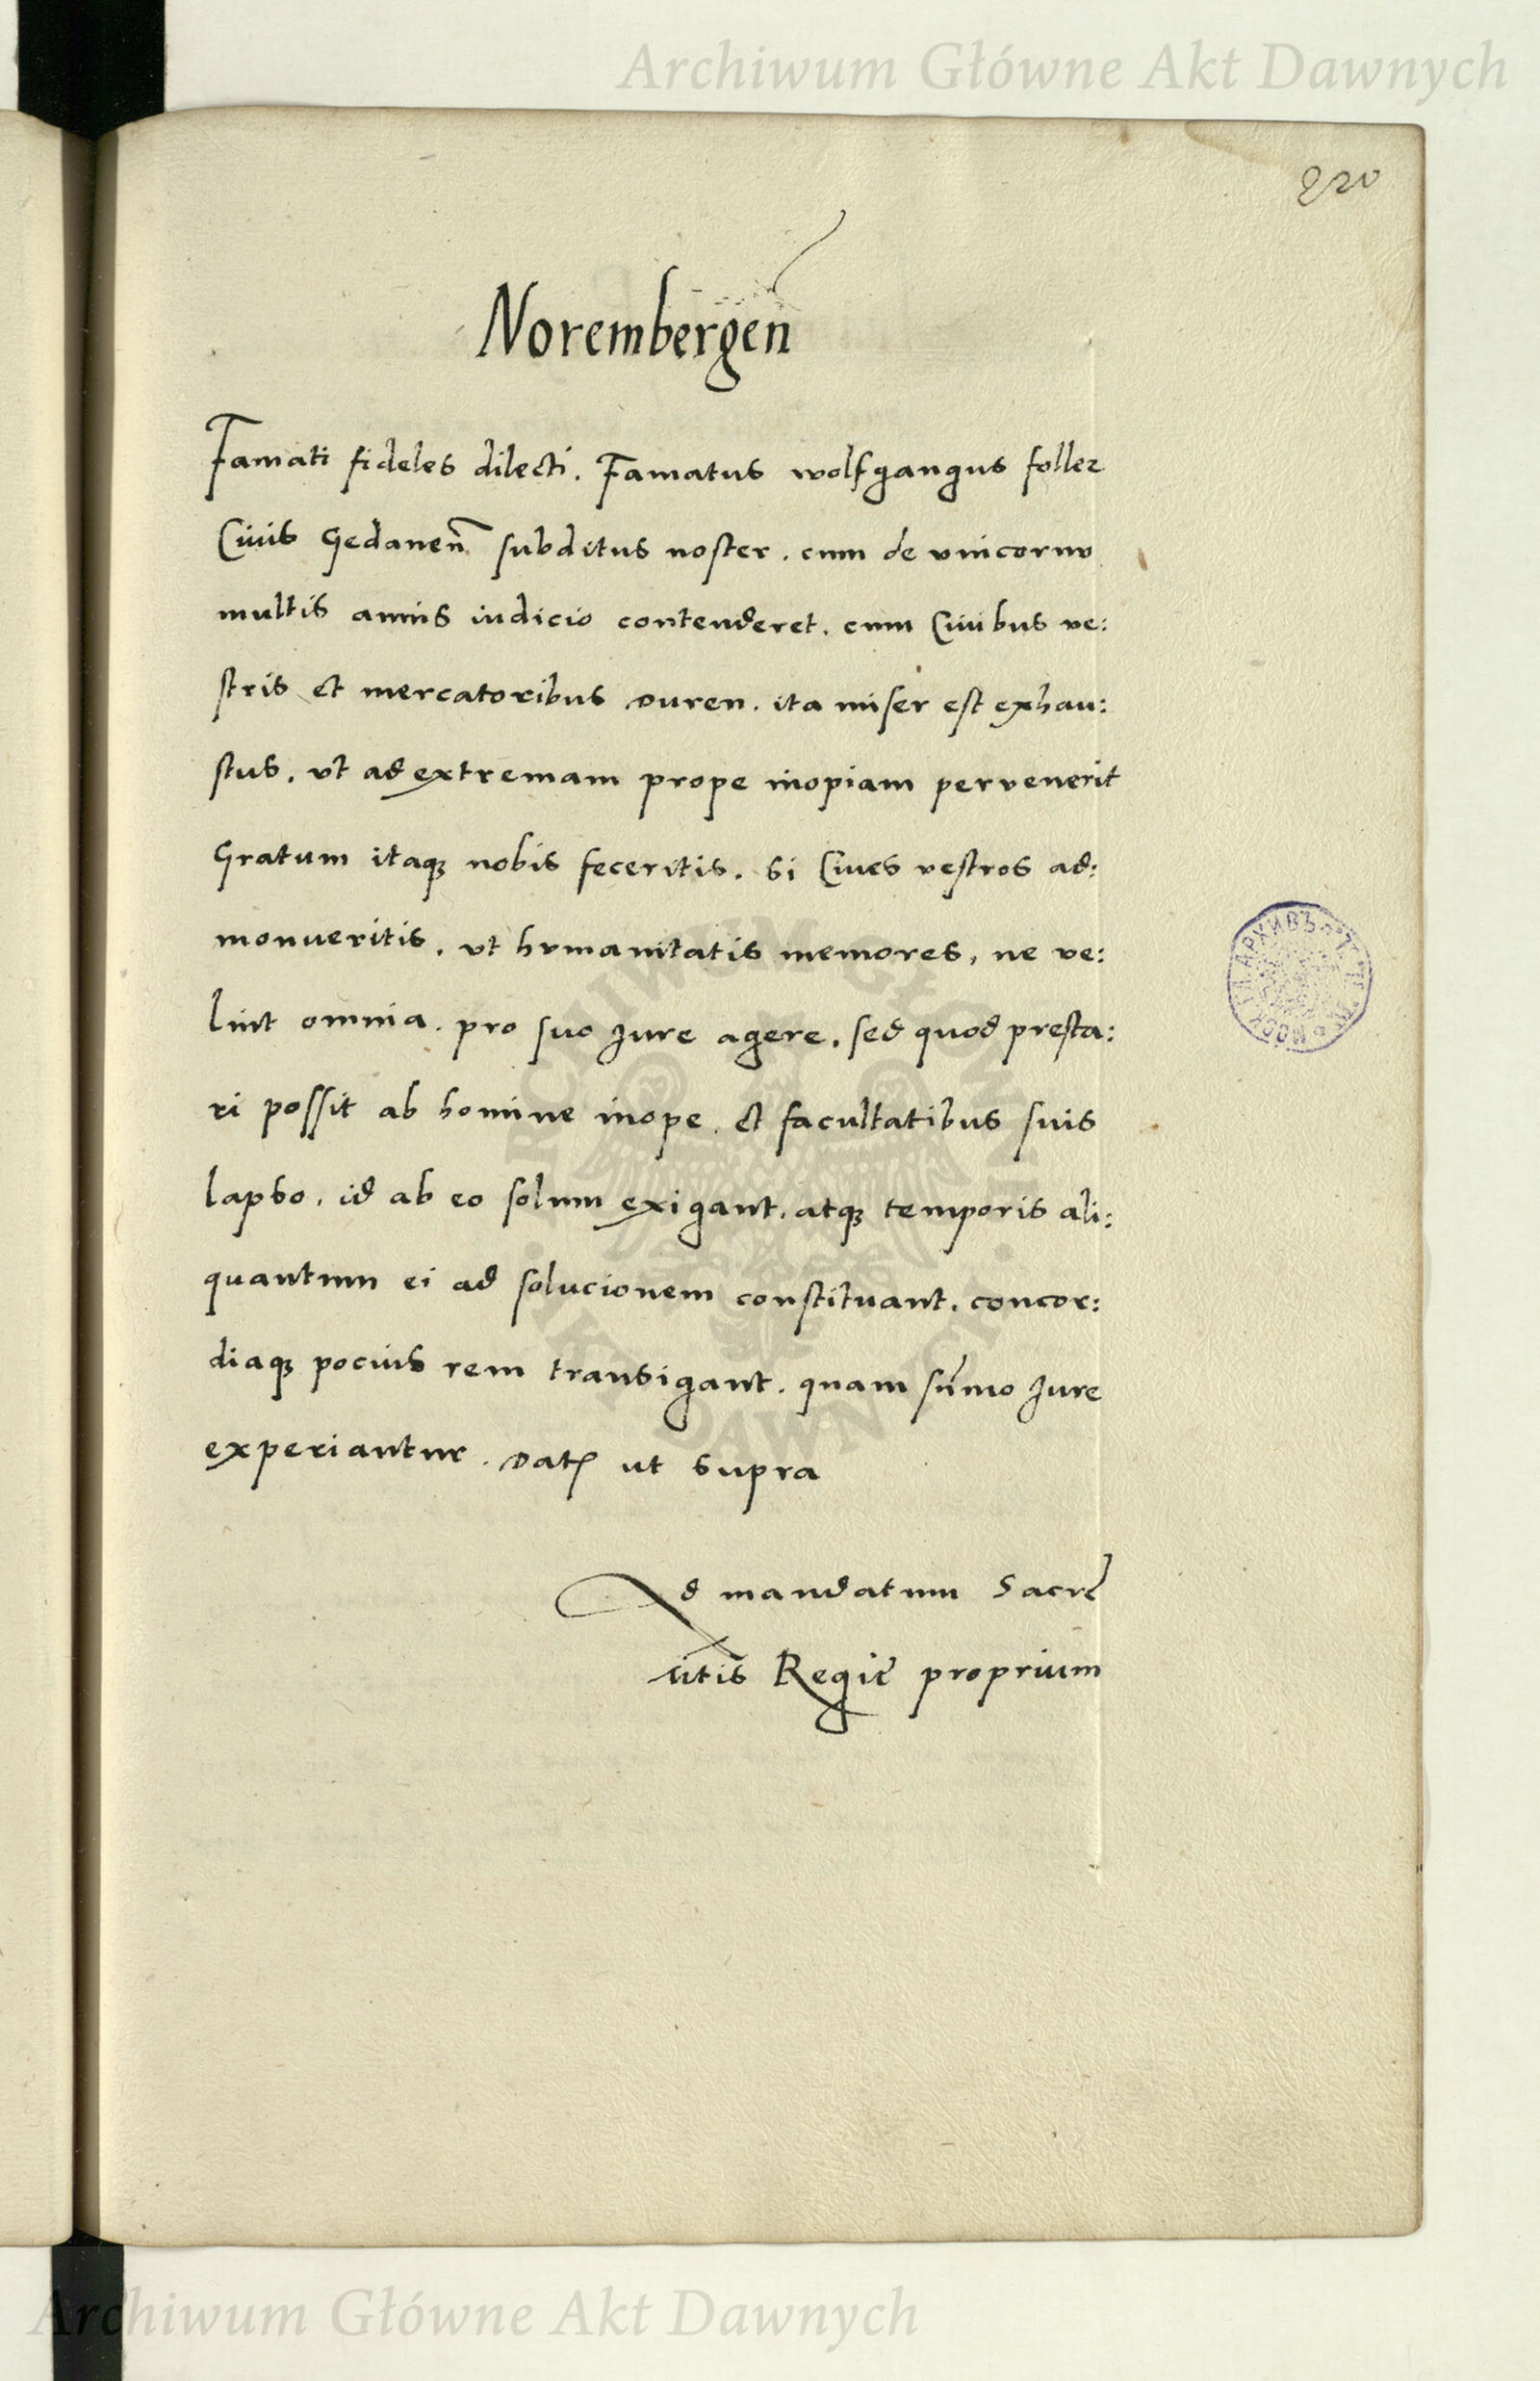 Archiwum Główne Akt Dawnych
220
Norembergen
Famati fideles dilecti. Famatus wolfgangus foller
Civis Gedanen̄ subditus noster. cum de vnicornu
multis annis iudicio contenderet. cum Civibus ve:
stris et mercatoribus Duren. ita miser est exhau:
stus. vt ad extremam prope inopiam pervenerit
Gratum itaqȝ nobis feceritis. si Cives vestros ad:
monueritis. vt humanitatis memores, ne ve:
lint omnia. pro suo Jure agere, sed quod presta:
ri possit ab homine inope. et facultatibus suis
lapso. id ab eo solum exigant. atqȝ temporis ali:
quantum ei ad solucionem constituant. concor:
diaqȝ pocius rem transigant. quam sum̄o Jure
experiantur. Datꝭ ut supra
Ad mandatum Sacre
Regie proprium
АРХИВЪ
ARCHIWUM GŁÓWNE AKT DAWNYCH
Archiwum Główne Akt Dawnych